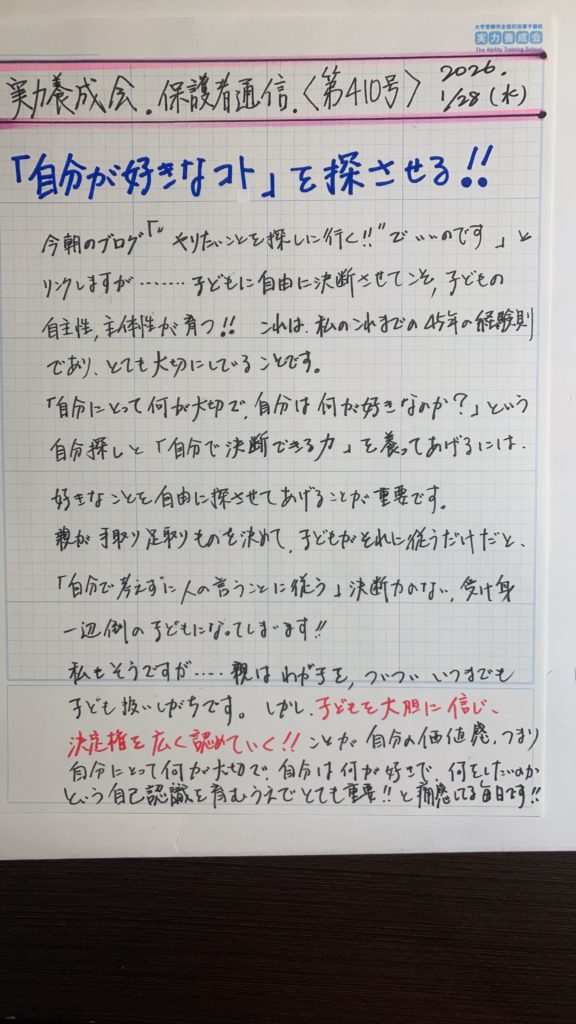 大学受験完全個別指導予備校
実力養成会
The Ability Training School
実力養成会.保護者通信.〈第410号〉 2026. 1/28(水)
「自分が好きなコト」を探させる!!
今朝のブログ「"やりたいことを探しに行く!!"でいいのです」と
リンクしますが………子どもに自由に決断させてこそ,子どもの
自主性,主体性が育つ!! これは、私のこれまでの45年の経験則
であり、とても大切にしていることです。
「自分にとって何が大切で,自分は何が好きなのか?」という
自分探しと「自分で決断できる力」を養ってあげるには、
好きなことを自由に探させてあげることが重要です。
親が手取り足取りものを決めて,子どもがそれに従うだけだと、
「自分で考えずに人の言うことに従う」決断力のない,受け身
一辺倒の子どもになってしまいます!!
私もそうですが…..親はわが子を,ついついいつまでも
子ども扱いしがちです。しかし、子どもを大胆に信じ、
決定権を広く認めていく!!ことが自分の価値感,つまり
自分にとって何が大切で,自分は何が好きで,何をしたいのか
という自己認識を育むうえでとても重要!!と痛感してる毎日です!!